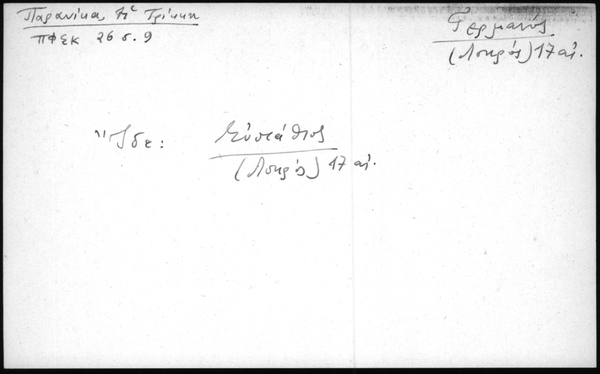 Παρανίκα, Ἡ Τρίκκη
ΠΦΣΚ 26 σ. 9
Γερμανός
(Λοκρός) 17 αἰ.
Ἴδε: Εὐστάθιος
(Λοκρός) 17 αἰ.